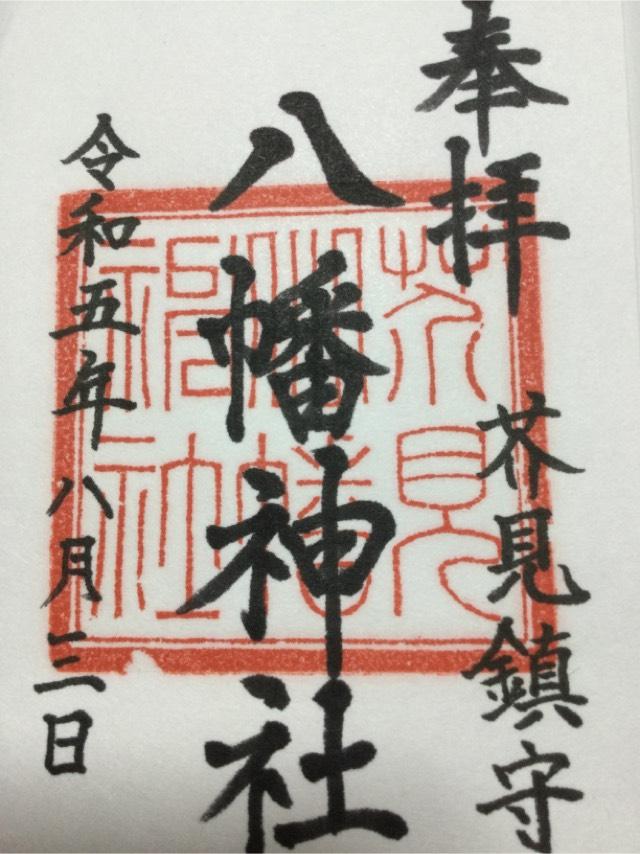 奉拝
芥見鎮守
八幡神社
令和五年八月三日
芥見
八幡
神社